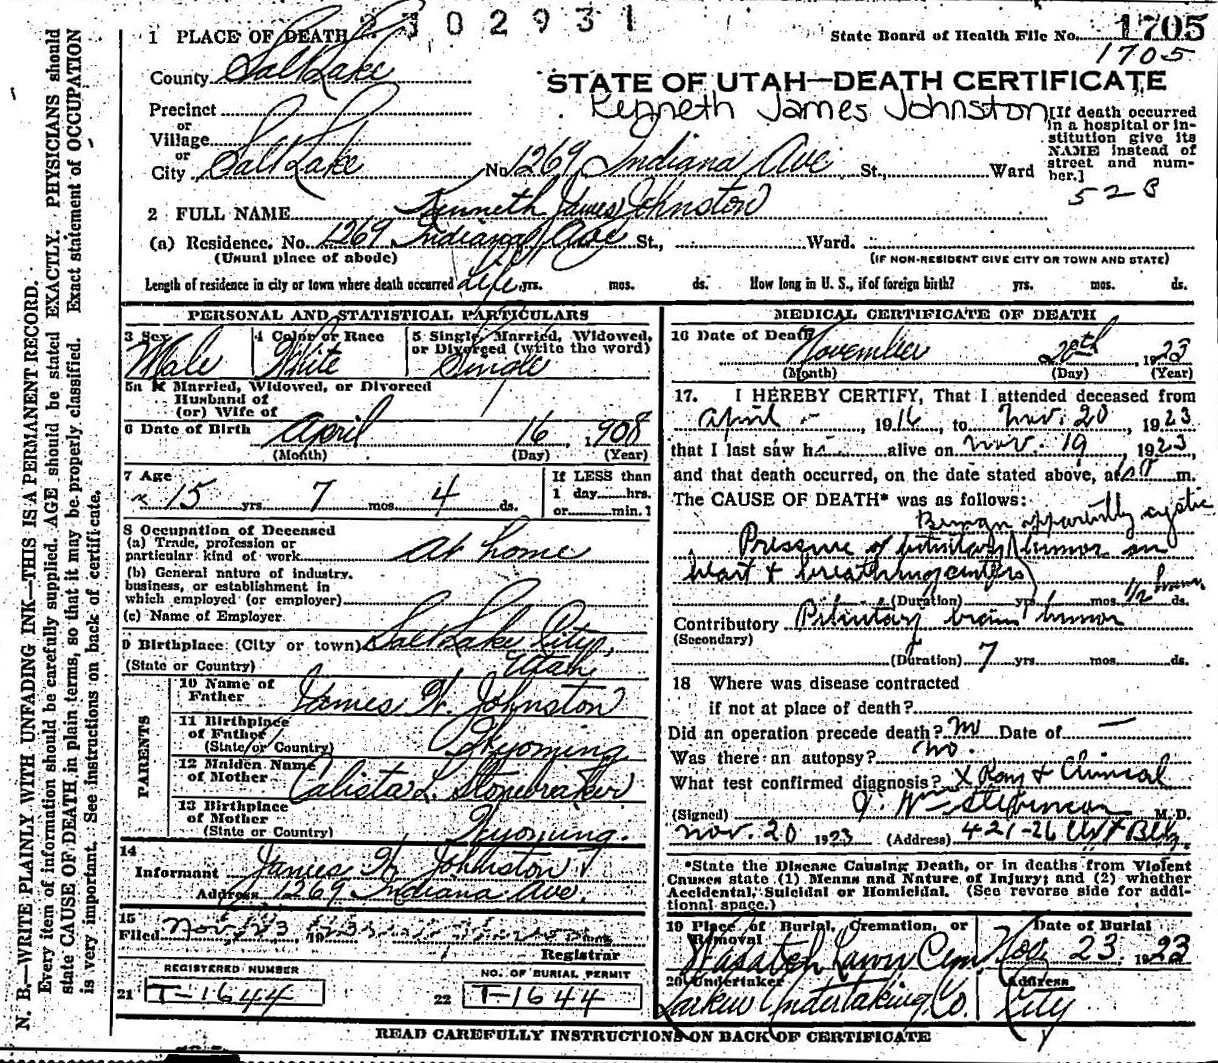 2302931
1 PLACE OF DEATH
State Board of Health File No. 1705
1705
County Salt Lake
STATE OF UTAH—DEATH CERTIFICATE
Kenneth James Johnston
Precinct
or
Village
or
City Salt Lake No. 1269 Indiana Ave St., Ward
[If death occurred
in a hospital or in-
stitution give its
NAME instead of
street and num-
ber.]
528
2 FULL NAME Kenneth James Johnston
(a) Residence. No. 1269 Indiana Ave St., Ward.
(Usual place of abode) (IF NON-RESIDENT GIVE CITY OR TOWN AND STATE)
Length of residence in city or town where death occurred Life yrs. mos. ds. How long in U. S., if of foreign birth? yrs. mos. ds.
PERSONAL AND STATISTICAL PARTICULARS
3 Sex Male
4 Color or Race White
5 Single, Married, Widowed,
or Divorced (write the word)
Single
5a If Married, Widowed, or Divorced
Husband of
(or) Wife of
6 Date of Birth April 16, 1908
(Month) (Day) (Year)
7 Age
15 yrs. 7 mos. 4 ds.
If LESS than
1 day hrs.
or min.?
8 Occupation of Deceased
(a) Trade, profession or
particular kind of work At home
(b) General nature of industry,
business, or establishment in
which employed (or employer)
(c) Name of Employer
9 Birthplace (City or town) Salt Lake City,
(State or Country) Utah
PARENTS
10 Name of
Father James H. Johnston
11 Birthplace
of Father
(State or Country) Wyoming
12 Maiden Name
of Mother Calista L. Stonebraker
13 Birthplace
of Mother
(State or Country) Wyoming.
14
Informant James H. Johnston
Address 1269 Indiana Ave.
15
Filed Nov 23 1923
Registrar
REGISTERED NUMBER
21 T-1644
NO. OF BURIAL PERMIT
22 T-1644
MEDICAL CERTIFICATE OF DEATH
16 Date of Death
November 20th 1923
(Month) (Day) (Year)
17. I HEREBY CERTIFY, That I attended deceased from
April - 1916, to Nov. 20, 1923
that I last saw h alive on Nov. 19, 1923,
and that death occurred, on the date stated above, at m.
The CAUSE OF DEATH* was as follows:
Benign apparently cystic
Pressure of pituitary tumor on
heart + breathing centers
(Duration) yrs. mos. 1/2 hour ds.
Contributory Pituitary brain tumor
(Secondary)
(Duration) 7 yrs. mos. ds.
18 Where was disease contracted
if not at place of death?
Did an operation precede death? No Date of —
Was there an autopsy? No.
What test confirmed diagnosis? X Ray + Clinical
(Signed) J. Wm Stevenson M.D.
Nov. 20 1923 (Address) 421-26 Bldg.
*State the Disease Causing Death, or in deaths from Violent
Causes state (1) Means and Nature of Injury; and (2) whether
Accidental, Suicidal or Homicidal. (See reverse side for addi-
tional space.)
19 Place of Burial, Cremation, or
Removal
Wasatch Lawn Cem
Date of Burial
Nov 23 1923
20 Undertaker
Larkin Undertaking Co.
Address
City
READ CAREFULLY INSTRUCTIONS ON BACK OF CERTIFICATE
N. B.—WRITE PLAINLY WITH UNFADING INK—THIS IS A PERMANENT RECORD.
Every item of information should be carefully supplied. AGE should be stated EXACTLY. PHYSICIANS should
state CAUSE OF DEATH in plain terms, so that it may be properly classified. Exact statement of OCCUPATION
is very important. See instructions on back of certificate.